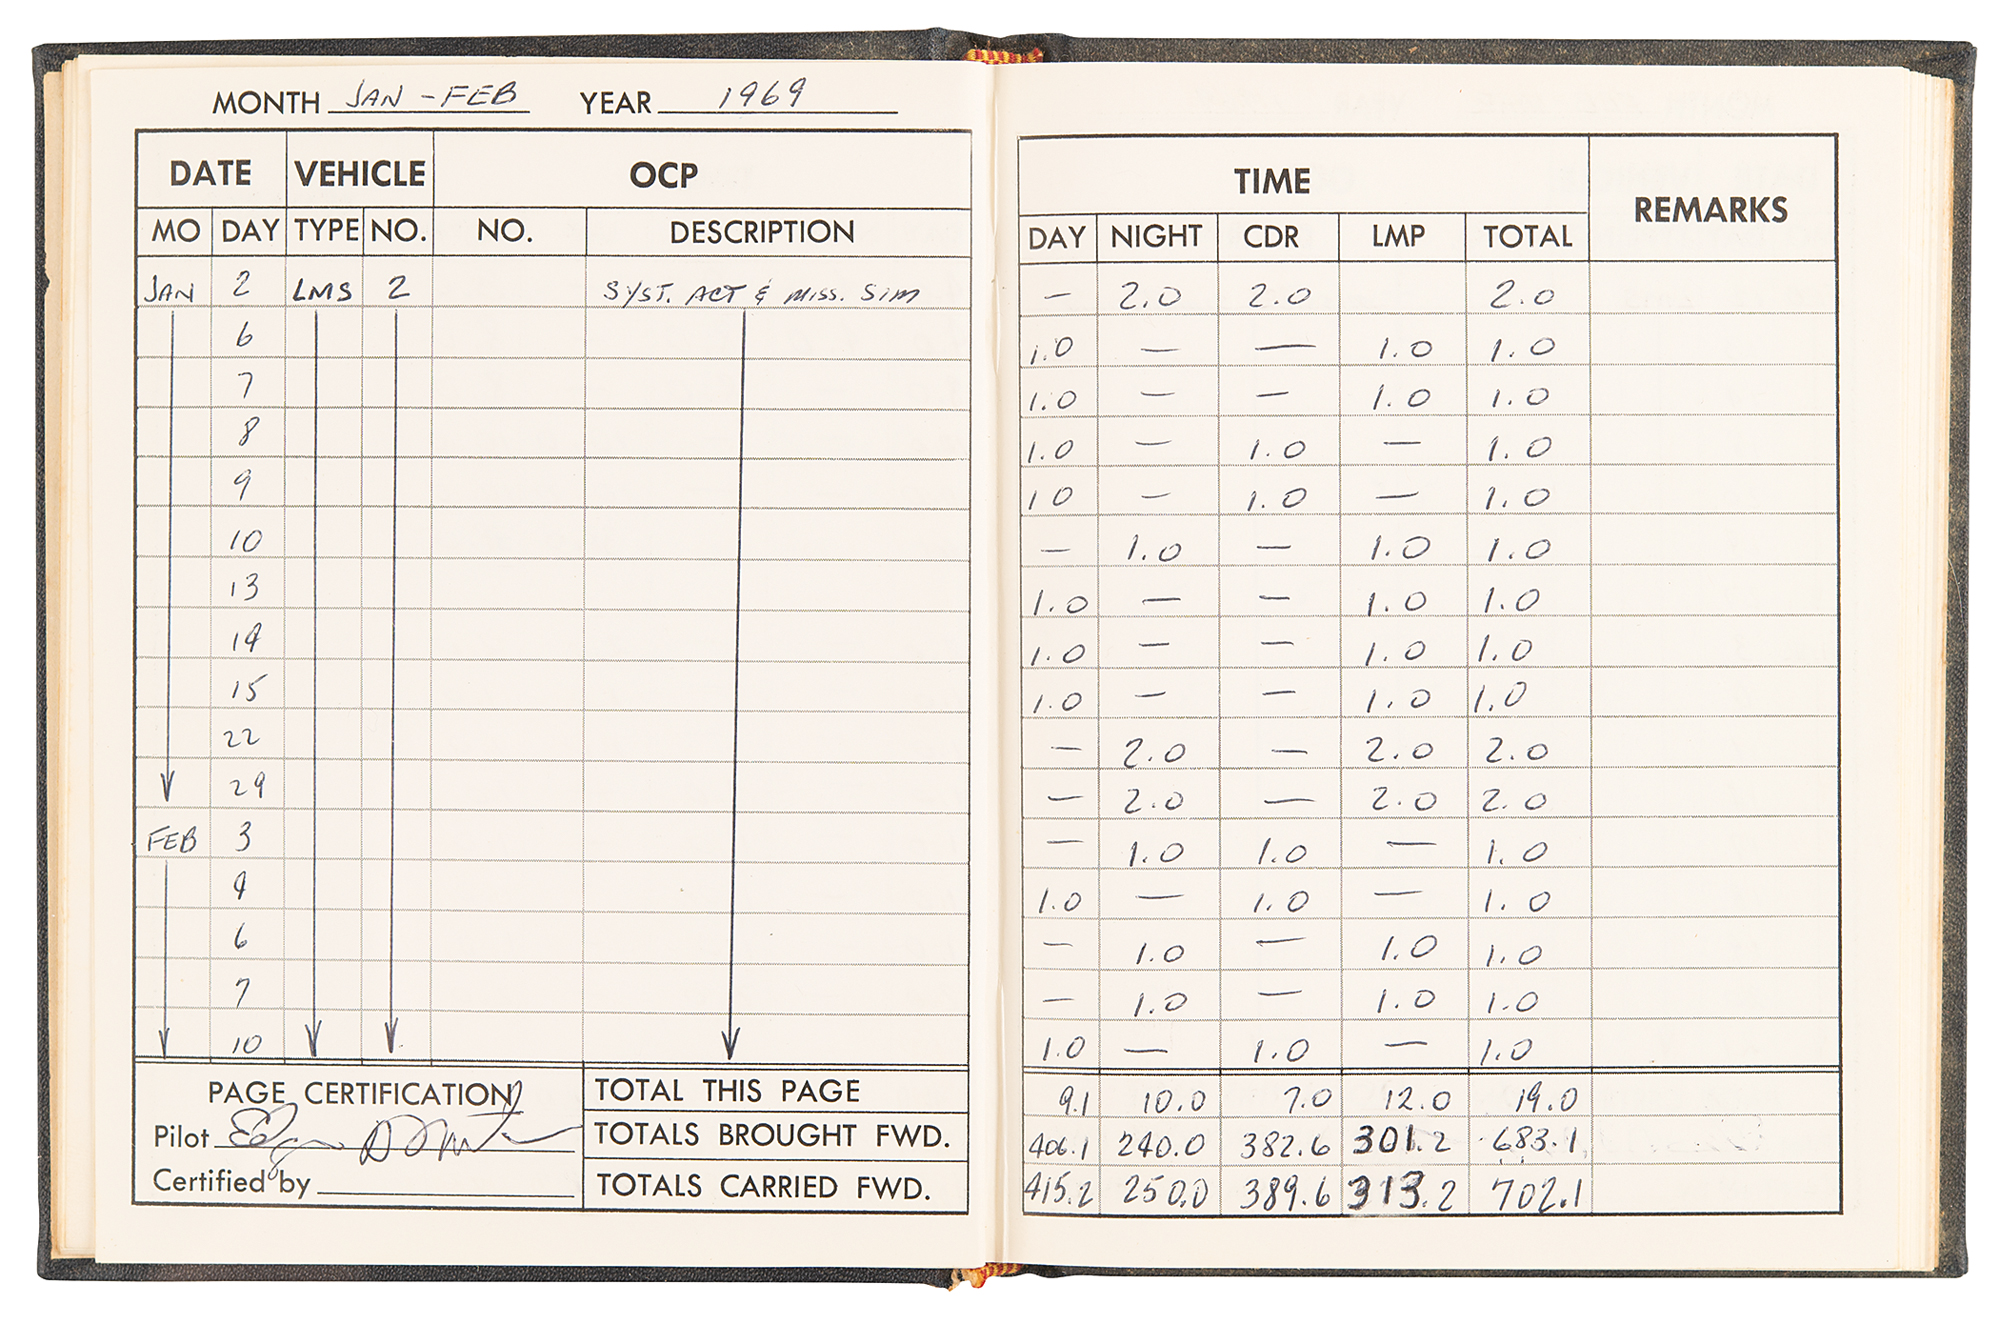 MONTH JAN - FEB YEAR 1969
DATE VEHICLE OCP TIME REMARKS
MO DAY TYPE NO. NO. DESCRIPTION DAY NIGHT CDR LMP TOTAL
JAN 2 LMS 2 SYST. ACT & MISS. SIM — 2.0 2.0 2.0
6 1.0 — — 1.0 1.0
7 1.0 — — 1.0 1.0
8 1.0 — 1.0 — 1.0
9 10 — 1.0 — 1.0
10 — 1.0 — 1.0 1.0
13 1.0 — — 1.0 1.0
14 1.0 — — 1.0 1.0
15 1.0 — — 1.0 1.0
22 — 2.0 — 2.0 2.0
29 — 2.0 — 2.0 2.0
FEB 3 — 1.0 1.0 — 1.0
4 1.0 — 1.0 — 1.0
6 — 1.0 — 1.0 1.0
7 — 1.0 — 1.0 1.0
10 1.0 — 1.0 — 1.0
PAGE CERTIFICATION TOTAL THIS PAGE 9.1 10.0 7.0 12.0 19.0
Pilot Edgar D Mitchell TOTALS BROUGHT FWD. 406.1 240.0 382.6 301.2 683.1
Certified by TOTALS CARRIED FWD. 415.2 250.0 389.6 313.2 702.1